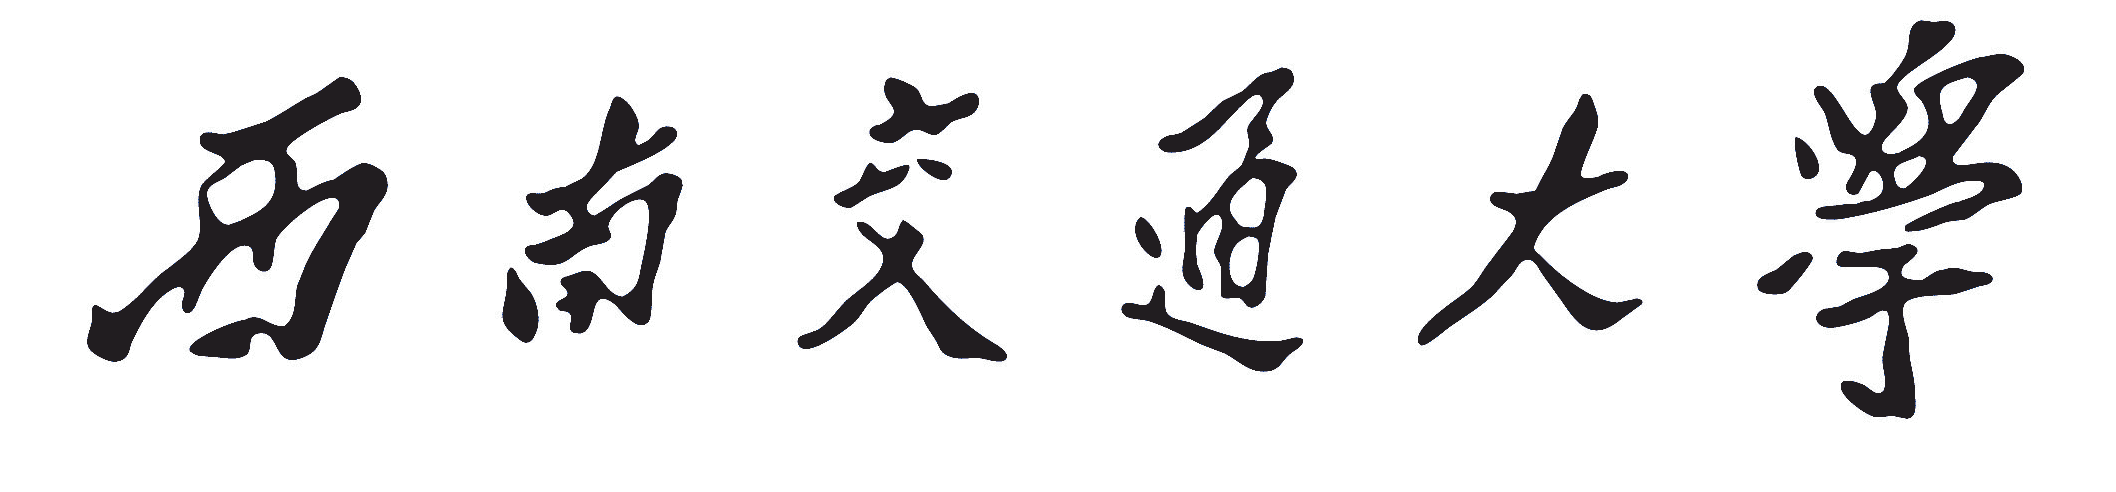 西南交通大學